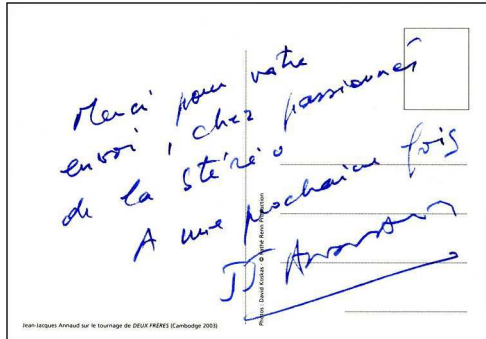 Merci pour votre
envoi, chez passionnés
de la stéréo
A une prochaine fois
JJ Annaud
Photos : David Koskas - © Pathé Renn Production
Jean-Jacques Annaud sur le tournage de DEUX FRÈRES (Cambodge 2003)